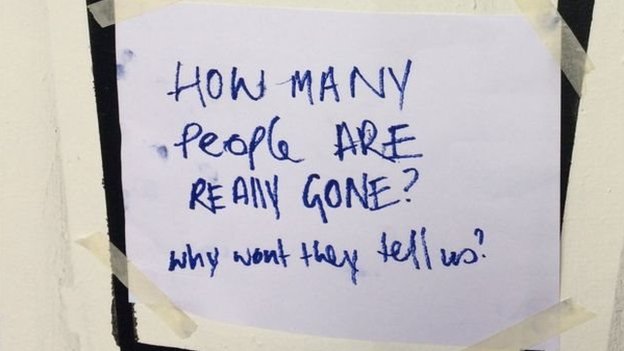 HOW MANY
PeOPle ARE
REAlly GONE?
why wont they tell us?